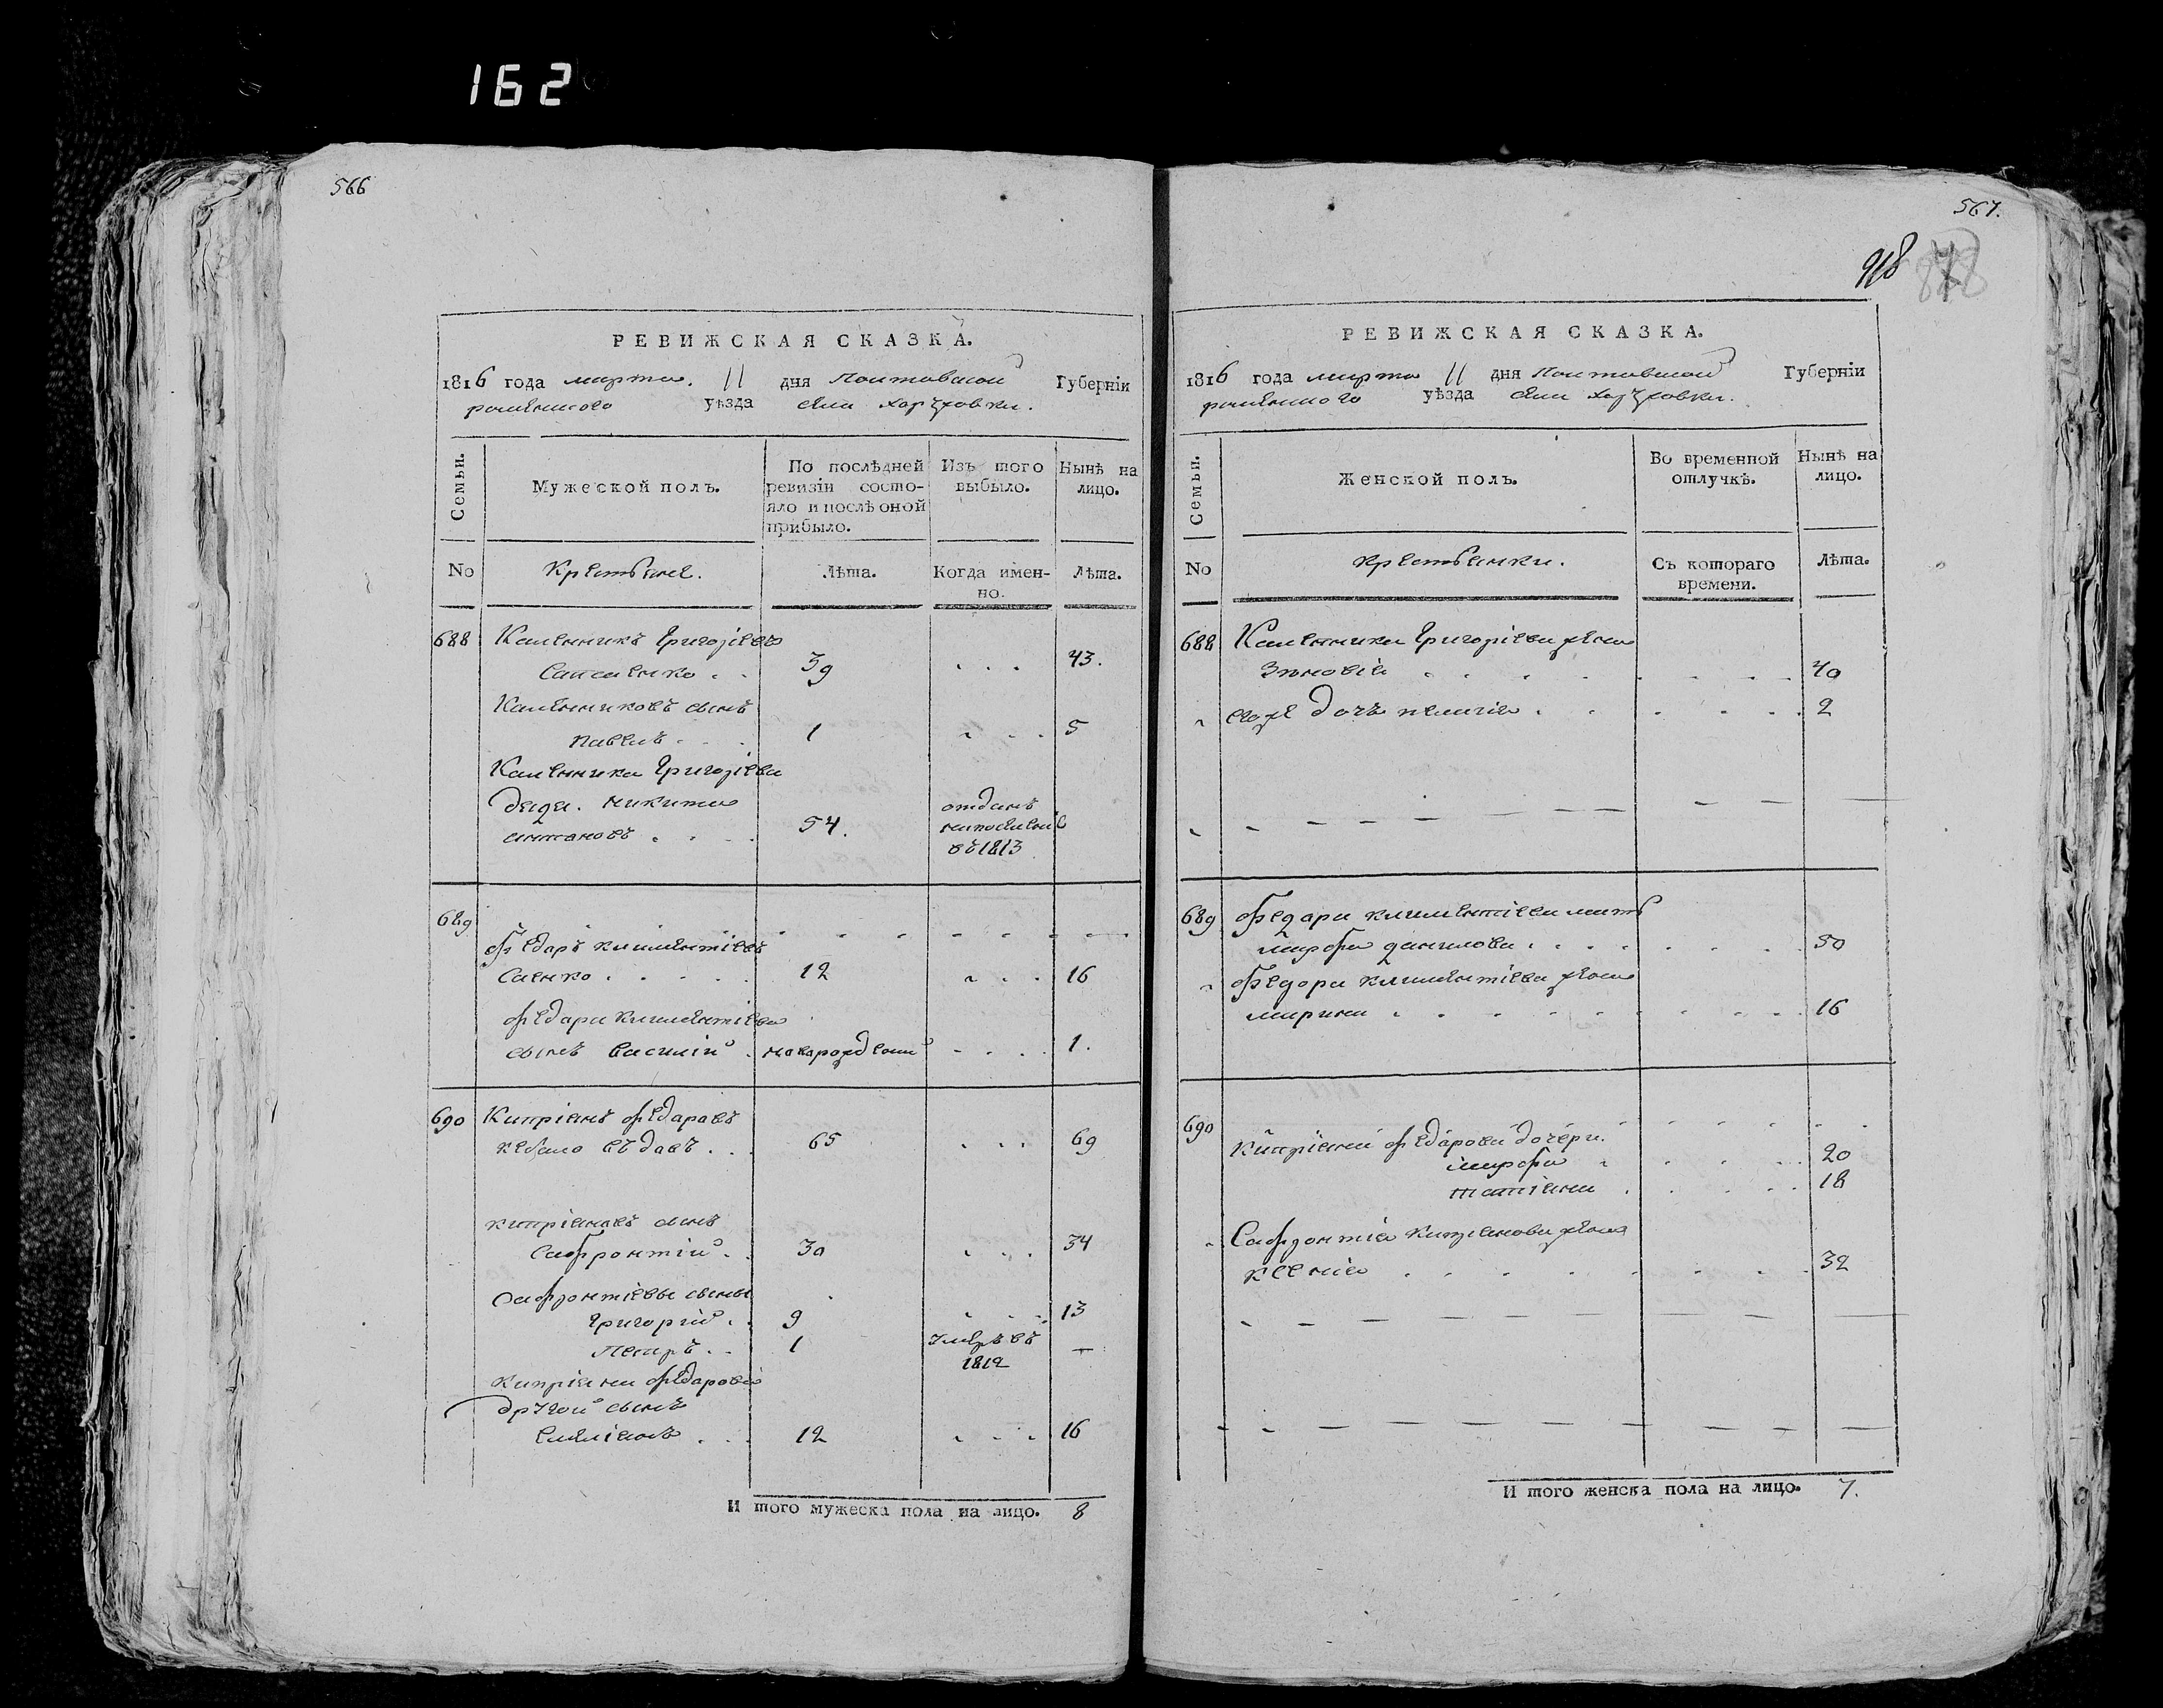 162
566
РЕВИЖСКАЯ СКАЗКА.
1816 года марта 11 дня Полтавской Губерніи
роменского уѣзда села
Семьи.
Мужеской полъ.
По послѣдней ревизіи состо-
яло и послѣ оной прибыло.
Изъ того выбыло.
Нынѣ на лицо.
No
Крестьяне.
Лѣта.
Когда имен-
но.
Лѣта.
688 Каленникъ Григоріевъ
39 43.
Каленниковъ сынъ
Павелъ 1 5
Каленника Григоріева
дядя Никита
антоновъ 54. отданъ
на поселеніе
въ 1813
689
Федаръ климентіевъ
Саенко 12 16
федара климентіева
сынъ василій новорожденный 1.
690 Кипріянъ федаровъ
65 69
кипріяновъ сынъ
Сафронтій 30 34
Сафронтіевы сыны
Григорій 9 13
Петръ 1 умеръ въ
1812 —
кипріяна федарова
другой сынъ
емеліянъ 12 16
И того мужеска пола на лицо. 8
567.
918
РЕВИЖСКАЯ СКАЗКА.
1816 года марта 11 дня Полтавской Губерніи
роменского уѣзда села
Семьи.
Женской полъ.
Во временной отлучкѣ.
Нынѣ на лицо.
No
Крестьянки.
Съ котораго
времени.
Лѣта.
688 Каленника Григоріева жена
Зѣновія 40
его же дочь пелагія 2
689 Федара климентіева мать
марфа данилова 50
Федора климентіева жена
марина 16
690
Кипріяна федарова дочери
марфа 20
татіяна 18
Сафронтія кипріянова жена
ксенія 32
И того женска пола на лицо. 7.